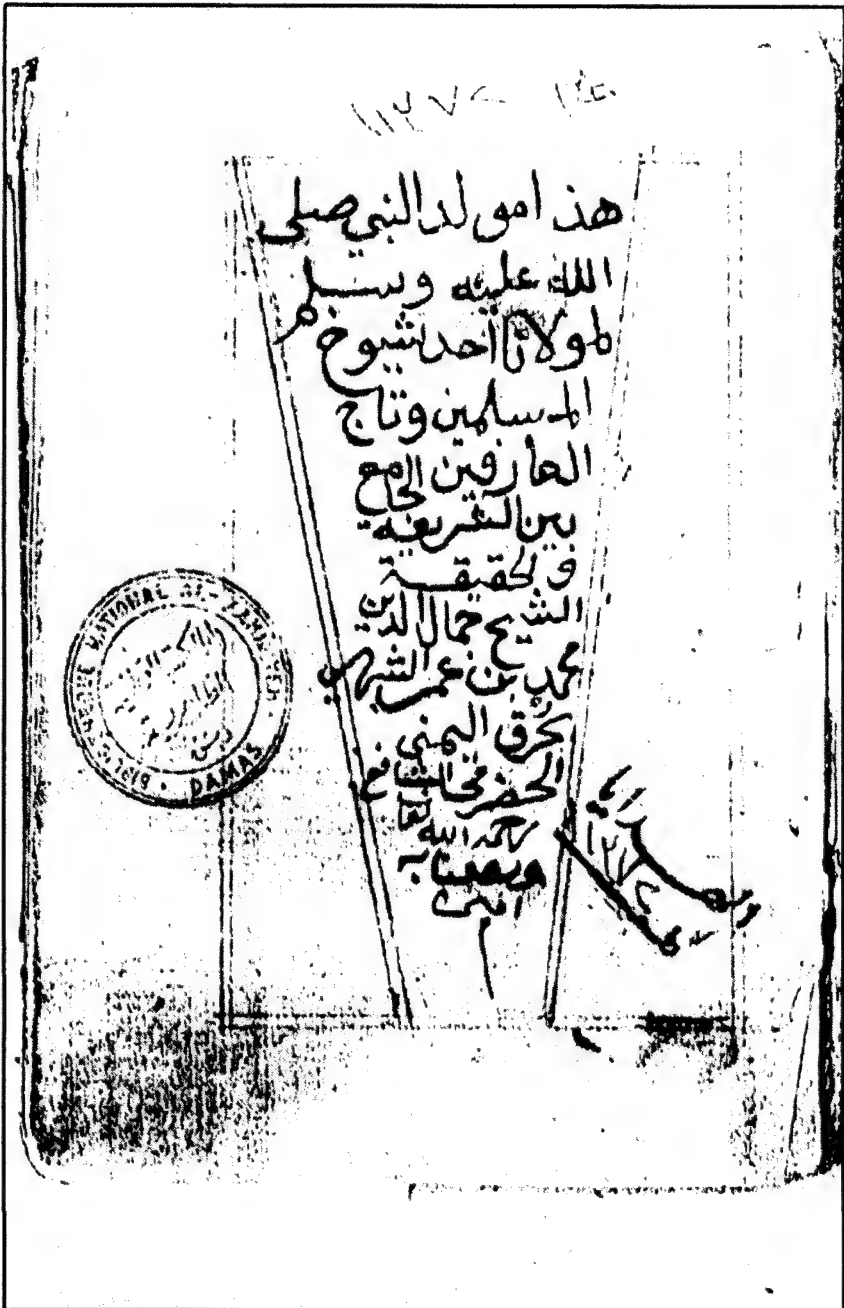 ١١٣٧٢
هذا مولد النبي صلى
الله عليه وسلم
لمولانا أحد شيوخ
المسلمين وتاج
العارفين الجامع
بين الشريعة
والحقيقة
الشيخ جمال الدين
محمد بن عمر الشهير
بحرق اليمني
الحضرمي الشافعي
رحمه الله تعالى
ونفعنا به
امين
BIBLIOTHEQUE NATIONAL AL-ZAHIRIYEH · DAMAS ·